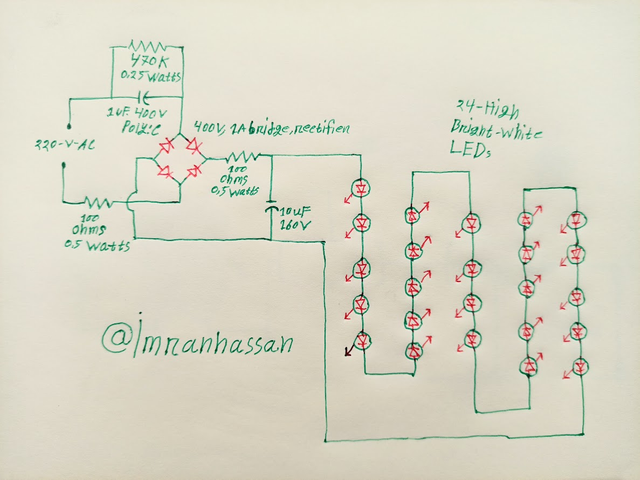 470K
0.25 Watts
1uF. 400V
Poly:C
400V, 1A bridge, rectifier
24-High
Bright-White
LEDs
220-V-AC
100
Ohms
0.5 Watts
10uF
160V
100
Ohms
0.5 Watts
@imranhassan